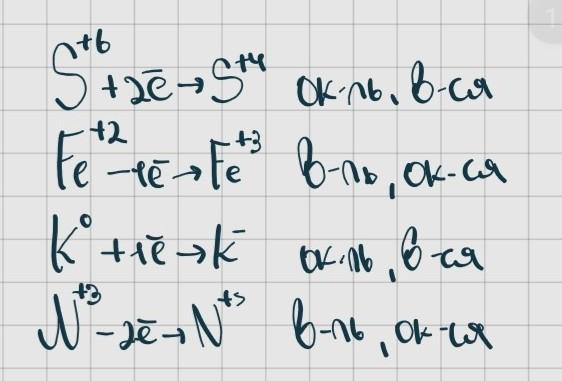 1
S⁺⁶ +2ē → S⁺⁴ ок-ль, в-ся
Fe⁺² -1ē → Fe⁺³ в-ль, ок-ся
K⁰ +1ē → K⁻ ок-ль, в-ся
N⁺³ -2ē → N⁺⁵ в-ль, ок-ся